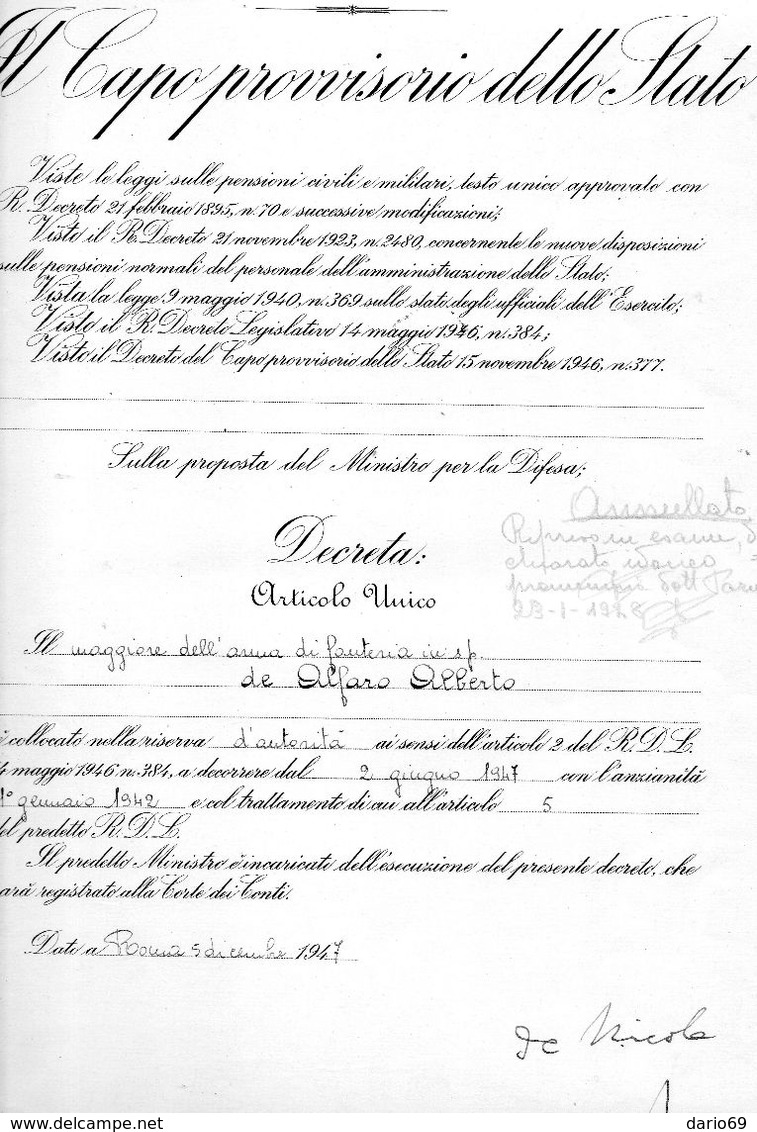 Il Capo provvisorio dello Stato
Viste le leggi sulle pensioni civili e militari, testo unico approvato con
R. Decreto 21 febbraio 1895, n. 70 e successive modificazioni;
Visto il R. Decreto 21 novembre 1923, n. 2480, concernente le nuove disposizioni
sulle pensioni normali del personale dell'amministrazione dello Stato;
Vista la legge 9 maggio 1940, n. 369 sullo stato degli ufficiali dell'Esercito;
Visto il R. Decreto Legislativo 14 maggio 1946, n. 384;
Visto il Decreto del Capo provvisorio dello Stato 15 novembre 1946, n. 377.
Sulla proposta del Ministro per la Difesa;
Annullato
Ripreso in esame, di
chiarato idoneo
dott.
Decreta:
Articolo Unico
Il maggiore dell'arma di fanteria in s.p.
de Alfaro Alberto
è collocato nella riserva d'autorità ai sensi dell'articolo 2 del R. D. L.
4 maggio 1946 n. 384, a decorrere dal 2 giugno 1947 con l'anzianità
1° gennaio 1942 e col trattamento di cui all'articolo 5
del predetto R. D. L.
Il predetto Ministro è incaricato dell'esecuzione del presente decreto, che
arà registrato alla Corte dei Conti.
Dato a Roma 5 dicembre 1947
De Nicola
www.delcampe.net
dario69